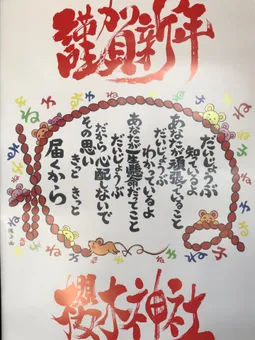 謹賀新年
だいじょうぶ
知っているよ
あなたが頑張っていること
だいじょうぶ
わかっているよ
あなたが一生懸命だってこと
だいじょうぶ
だから心配しないで
その思い
きっと きっと
届くから
櫻木神社